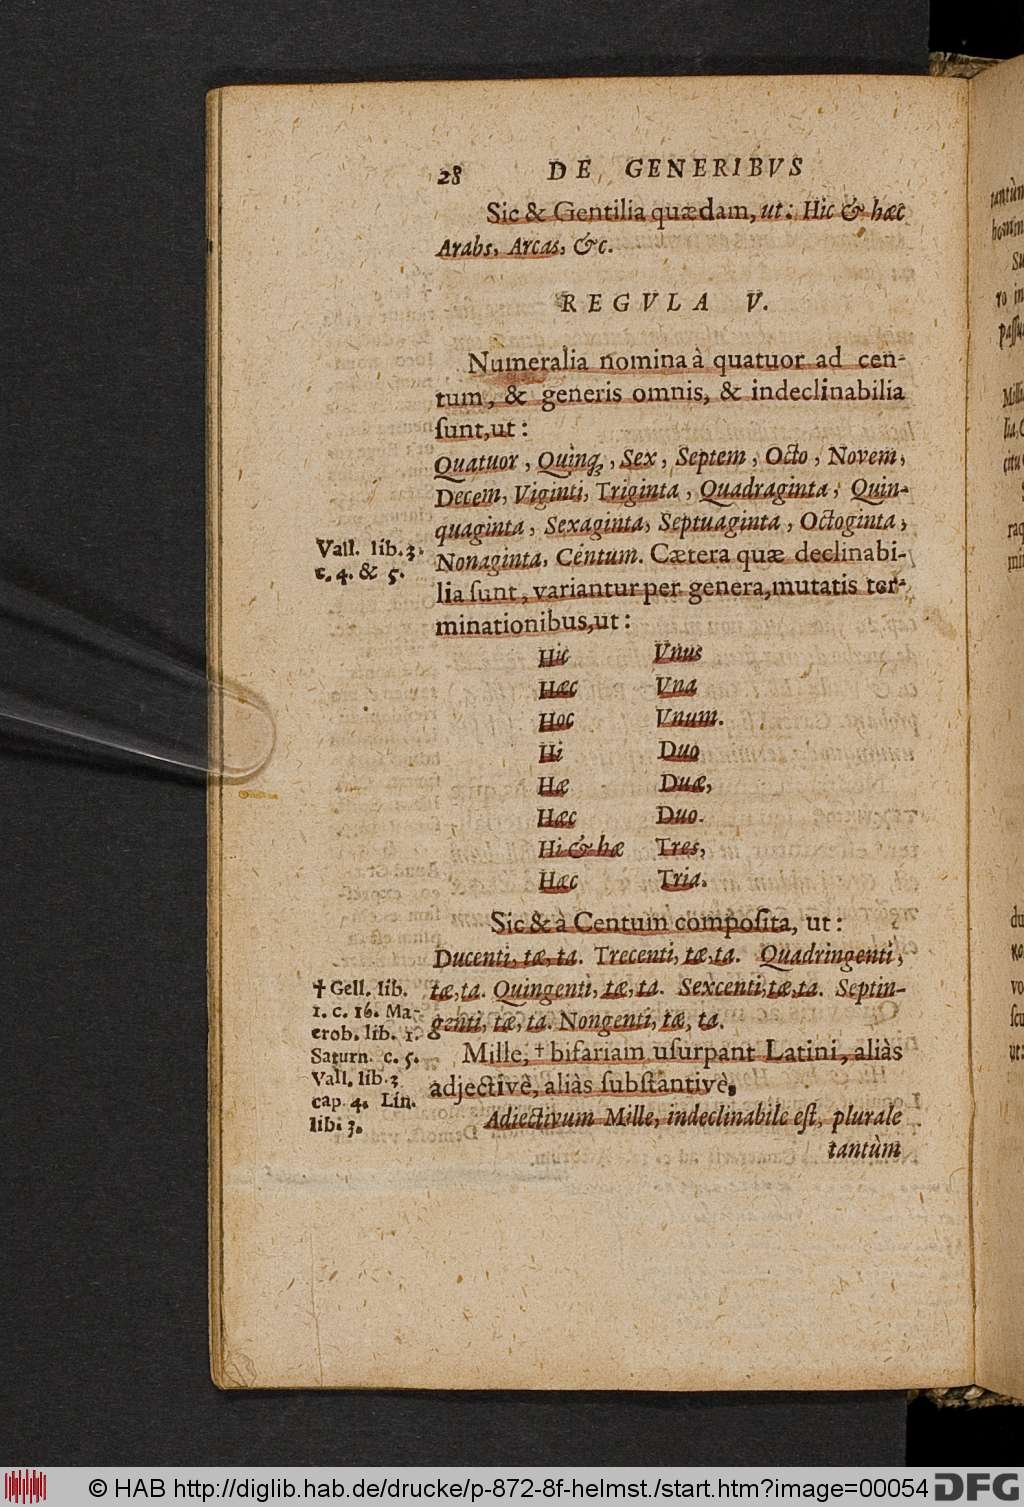 28 DE GENERIBVS
Sic & Gentilia quædam, ut: Hic & hæc
Arabs, Arcas, &c.
REGVLA V.
Numeralia nomina à quatuor ad cen-
tum, & generis omnis, & indeclinabilia
ſunt, ut:
Quatuor, Quinqꝫ, Sex, Septem, Octo, Novem,
Decem, Viginti, Triginta, Quadraginta, Quin-
quaginta, Sexaginta, Septuaginta, Octoginta,
Nonaginta, Centum. Cætera quæ declinabi-
lia ſunt, variantur per genera, mutatis ter-
minationibus, ut:
Vall. lib. 3.
c. 4. & 5.
Hic Vnus
Hæc Vna
Hoc Vnum.
Hi Duo
Hæ Duæ,
Hæc Duo.
Hi & hæ Tres,
Hæc Tria.
Sic & à Centum compoſita, ut:
Ducenti, tæ, ta. Trecenti, tæ, ta. Quadringenti,
tæ, ta. Quingenti, tæ, ta. Sexcenti, tæ, ta. Septin-
genti, tæ, ta. Nongenti, tæ, ta.
Mille, † bifariam uſurpant Latini, aliàs
adjectivè, aliàs ſubſtantivè.
Adiectivum Mille, indeclinabile eſt, plurale
tantùm
† Gell. lib.
1. c. 16. Ma-
crob. lib. 1.
Saturn. c. 5.
Vall. lib. 3
cap. 4. Lin.
lib. 3.
tantùm
© HAB http://diglib.hab.de/drucke/p-872-8f-helmst./start.htm?image=00054 DFG